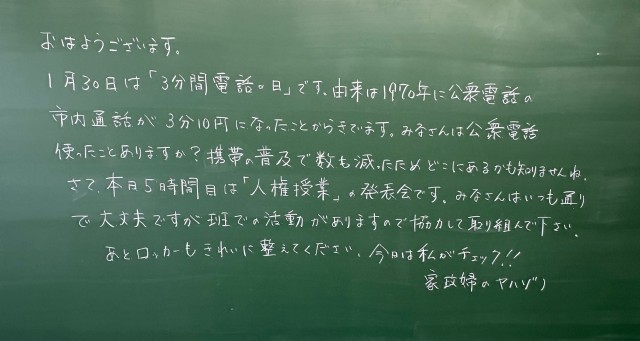 おはようございます。
1月30日は「3分間電話の日」です。由来は1970年に公衆電話の
市内通話が3分10円になったことからきてます。みなさんは公衆電話
使ったことありますか?携帯の普及で数も減ったためどこにあるかも知りませんね。
さて、本日5時間目は「人権授業」の発表会です。みなさんはいつも通り
で大丈夫ですが班での活動がありますので協力して取り組んで下さい。
あとロッカーもきれいに整えてください。今日は私がチェック!!
家政婦のヤハゾノ